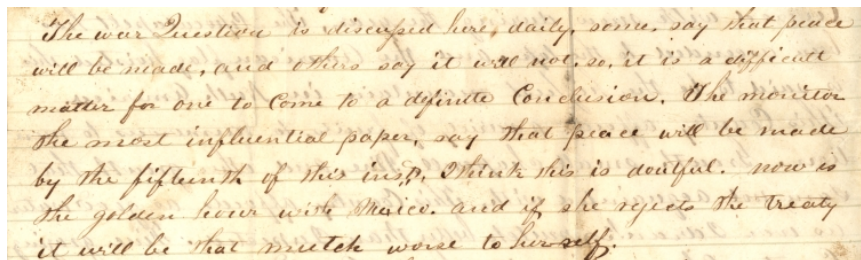 The war Question is discussed here, daily, some, say that peace
will be made, and others say it will not, so, it is a difficult
matter for one to Come to a definite Conclusion. The monitor
the most influential paper, say that peace will be made
by the fifteenth of this inst, I think this is doutful. now is
the golden hour with Mexico. and if she rejects the treaty
it will be that mutch worse to herself.